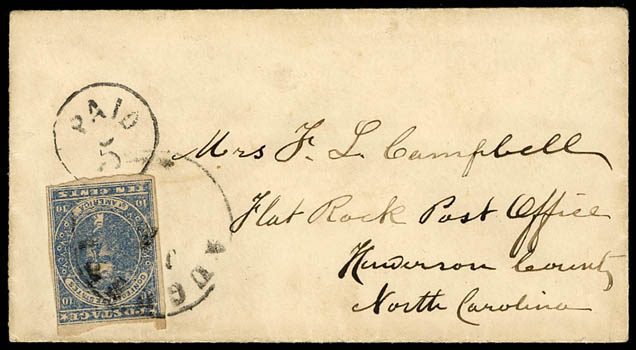 PAID
5
Mrs F. L. Campbell
Flat Rock Post Office
Henderson County
North Carolina
TEN CENTS
10 10
10
POSTAGE